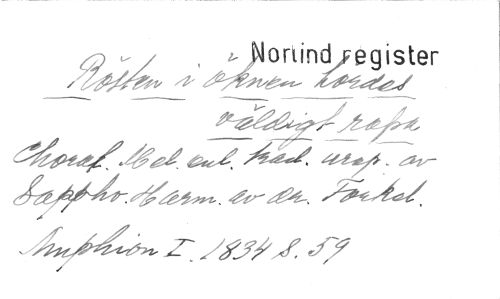 Norlind register
Rösten i öknen hördes
väldigt ropa
Choral. Mel. enl. trad. urspr. av
Sappho. Harm. av Dr. Forkel.
Amphion I. 1834 S. 59